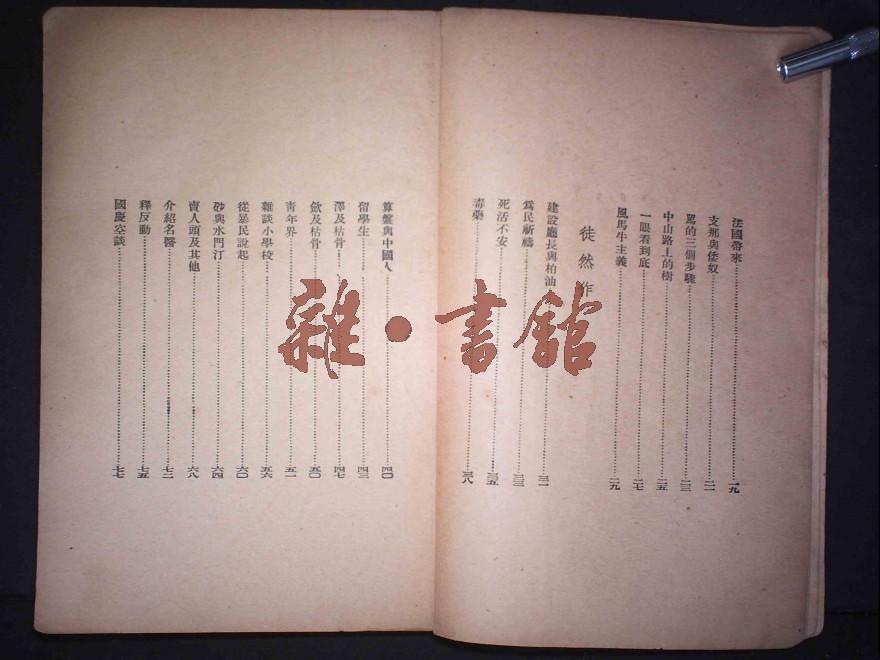 法國帶來……一九
支那與倭奴……二一
罵的三個步驟……二三
中山路上的樹……二五
一眼看到底……二七
風馬牛主義……二九
徒然作
建設廳長與柏油……三一
爲民祈禱……三三
死活不安……三五
毒藥……三八
算盤與中國人……四〇
留學生……四三
澤及枯骨……四七
斂及枯骨……五〇
靑年界……五一
雜談小學校……五六
從暴民說起……六〇
砂與水門汀……六四
賣人頭及其他……六八
介紹名醫……七二
釋反動……七五
國慶空談……七七
雜·書館